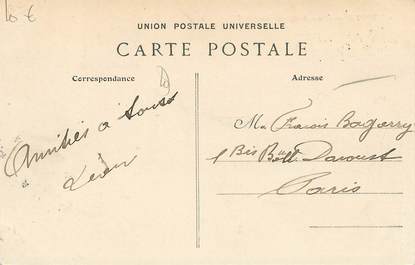 10 €
UNION POSTALE UNIVERSELLE
CARTE POSTALE
Correspondance
Adresse
Amitiés a tous
M Francis Bagarry
1 Bis Davoust
Paris